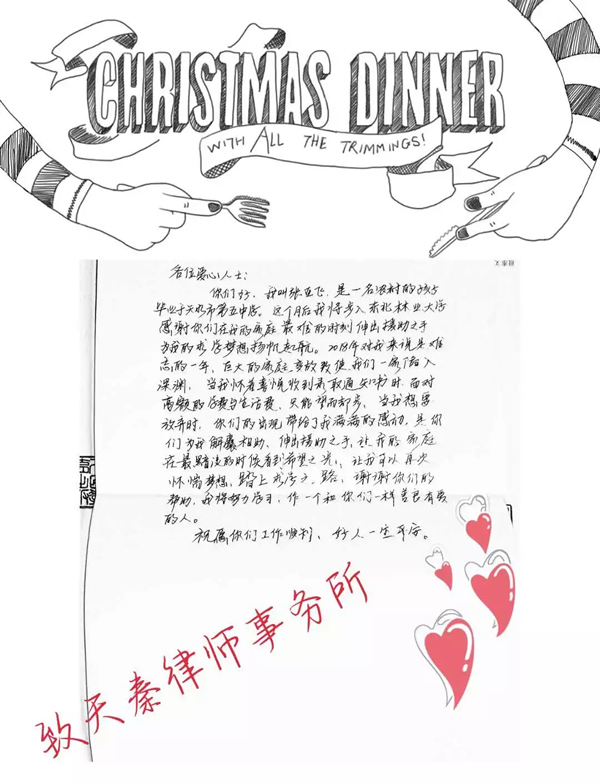 CHRISTMAS DINNER
WITH ALL THE TRIMMINGS!
各位爱心人士:
你们好,我叫张亚飞,是一名农村的孩子
毕业于天水市第五中学。这个月后我将步入东北林业大学
感谢你们在我的家庭最难的时刻伸出援助之手
为我的求学梦想扬帆起航。2018年对我来说是难
忘的一年,巨大的家庭变故致使我们一家陷入
深渊,当我怀着喜悦收到录取通知书时面对
高额的学费与生活费,只能望而却步,当我想要
放弃时,你们的出现带给了我满满的感动,是你
们为我解囊相助,伸出援助之手,让我的家庭
在最黯淡的时候看到希望之光,让我可以再次
怀惴梦想,踏上求学之路,谢谢你们的
帮助,我将努力学习,作一个和你们一样善良有爱
的人。
祝愿你们工作顺利、好人一生平安。
致天秦律师事务所